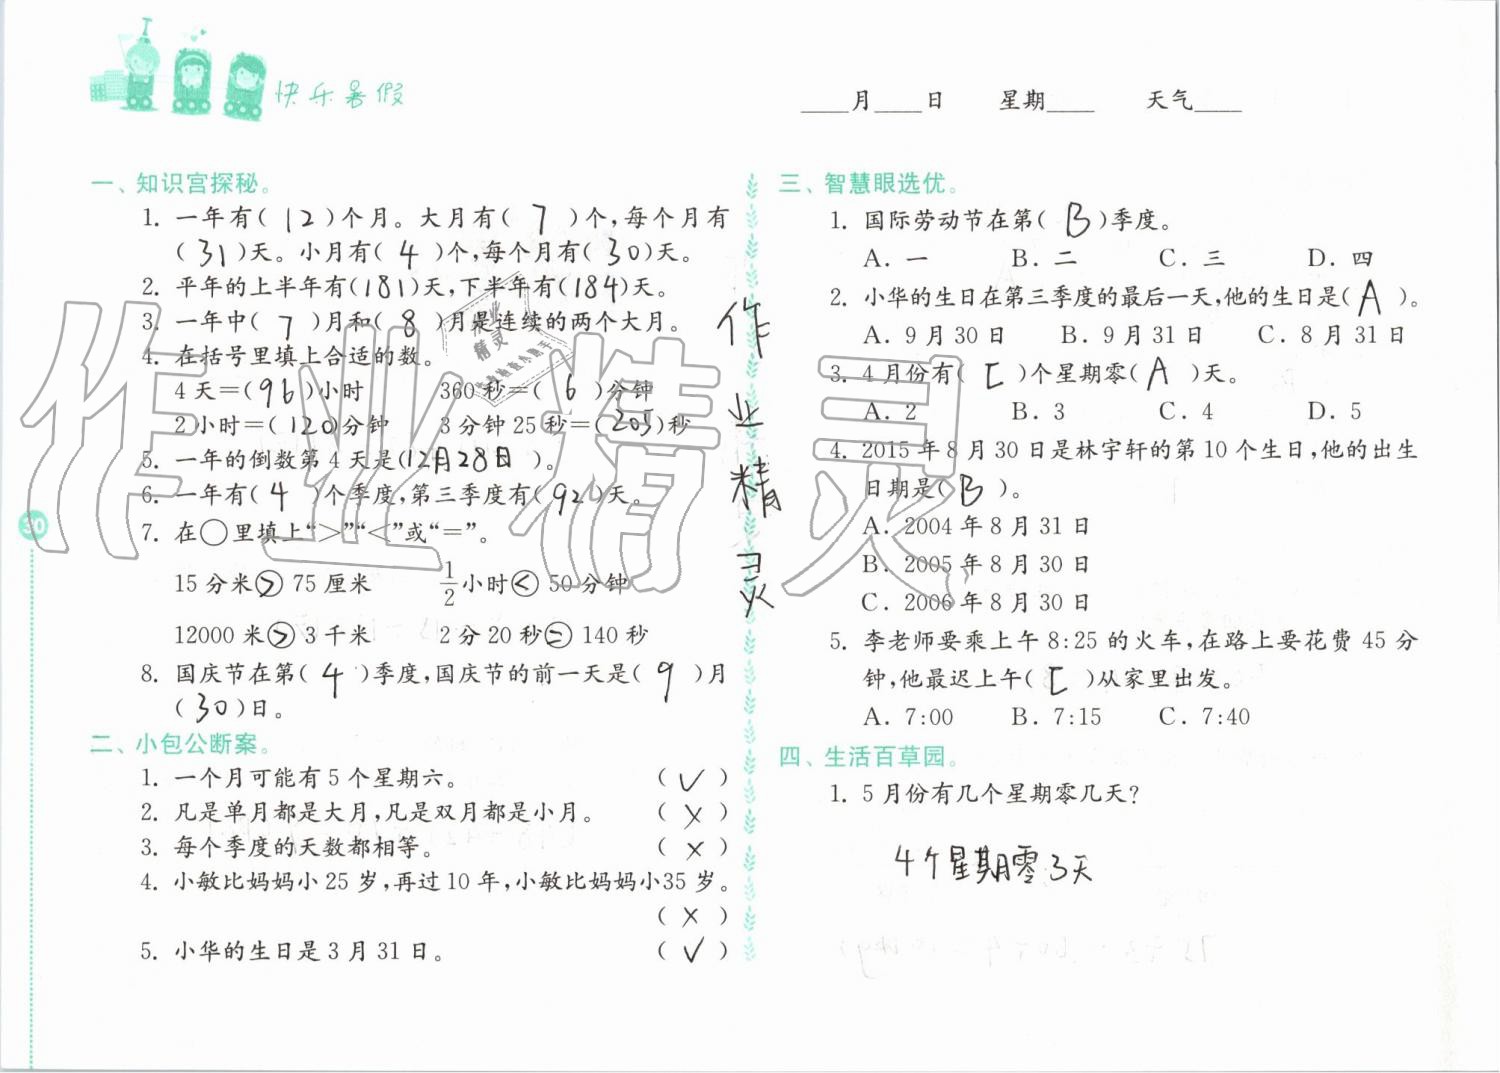 快乐暑假
____月____日　星期____　天气____
一、知识宫探秘。
1. 一年有( 12 )个月。大月有( 7 )个,每个月有
( 31 )天。小月有( 4 )个,每个月有( 30 )天。
2. 平年的上半年有(181)天,下半年有(184)天。
3. 一年中( 7 )月和( 8 )月是连续的两个大月。
4. 在括号里填上合适的数。
4 天=( 96 )小时　360 秒=( 6 )分钟
2 小时=( 120 )分钟　3 分钟 25 秒=( 205 )秒
5. 一年的倒数第 4 天是(12月28日)。
6. 一年有( 4 )个季度,第三季度有( 92 )天。
7. 在○里填上“>”“<”或“=”。
15 分米>75 厘米　1/2小时<50 分钟
12000 米>3 千米　2 分 20 秒=140 秒
8. 国庆节在第( 4 )季度,国庆节的前一天是( 9 )月
( 30 )日。
二、小包公断案。
1. 一个月可能有 5 个星期六。( ✓ )
2. 凡是单月都是大月,凡是双月都是小月。( × )
3. 每个季度的天数都相等。( × )
4. 小敏比妈妈小 25 岁,再过 10 年,小敏比妈妈小35 岁。
( × )
5. 小华的生日是 3 月 31 日。( ✓ )
30
作业精灵
作业精灵
作业
精灵
三、智慧眼选优。
1. 国际劳动节在第( B )季度。
A. 一　B. 二　C. 三　D. 四
2. 小华的生日在第三季度的最后一天,他的生日是( A )。
A. 9 月 30 日　B. 9 月 31 日　C. 8 月 31 日
3. 4 月份有( C )个星期零( A )天。
A. 2　B. 3　C. 4　D. 5
4. 2015 年 8 月 30 日是林宇轩的第 10 个生日,他的出生
日期是( B )。
A. 2004 年 8 月 31 日
B. 2005 年 8 月 30 日
C. 2006 年 8 月 30 日
5. 李老师要乘上午 8:25 的火车,在路上要花费 45 分
钟,他最迟上午( C )从家里出发。
A. 7:00　B. 7:15　C. 7:40
四、生活百草园。
1. 5 月份有几个星期零几天?
4个星期零3天